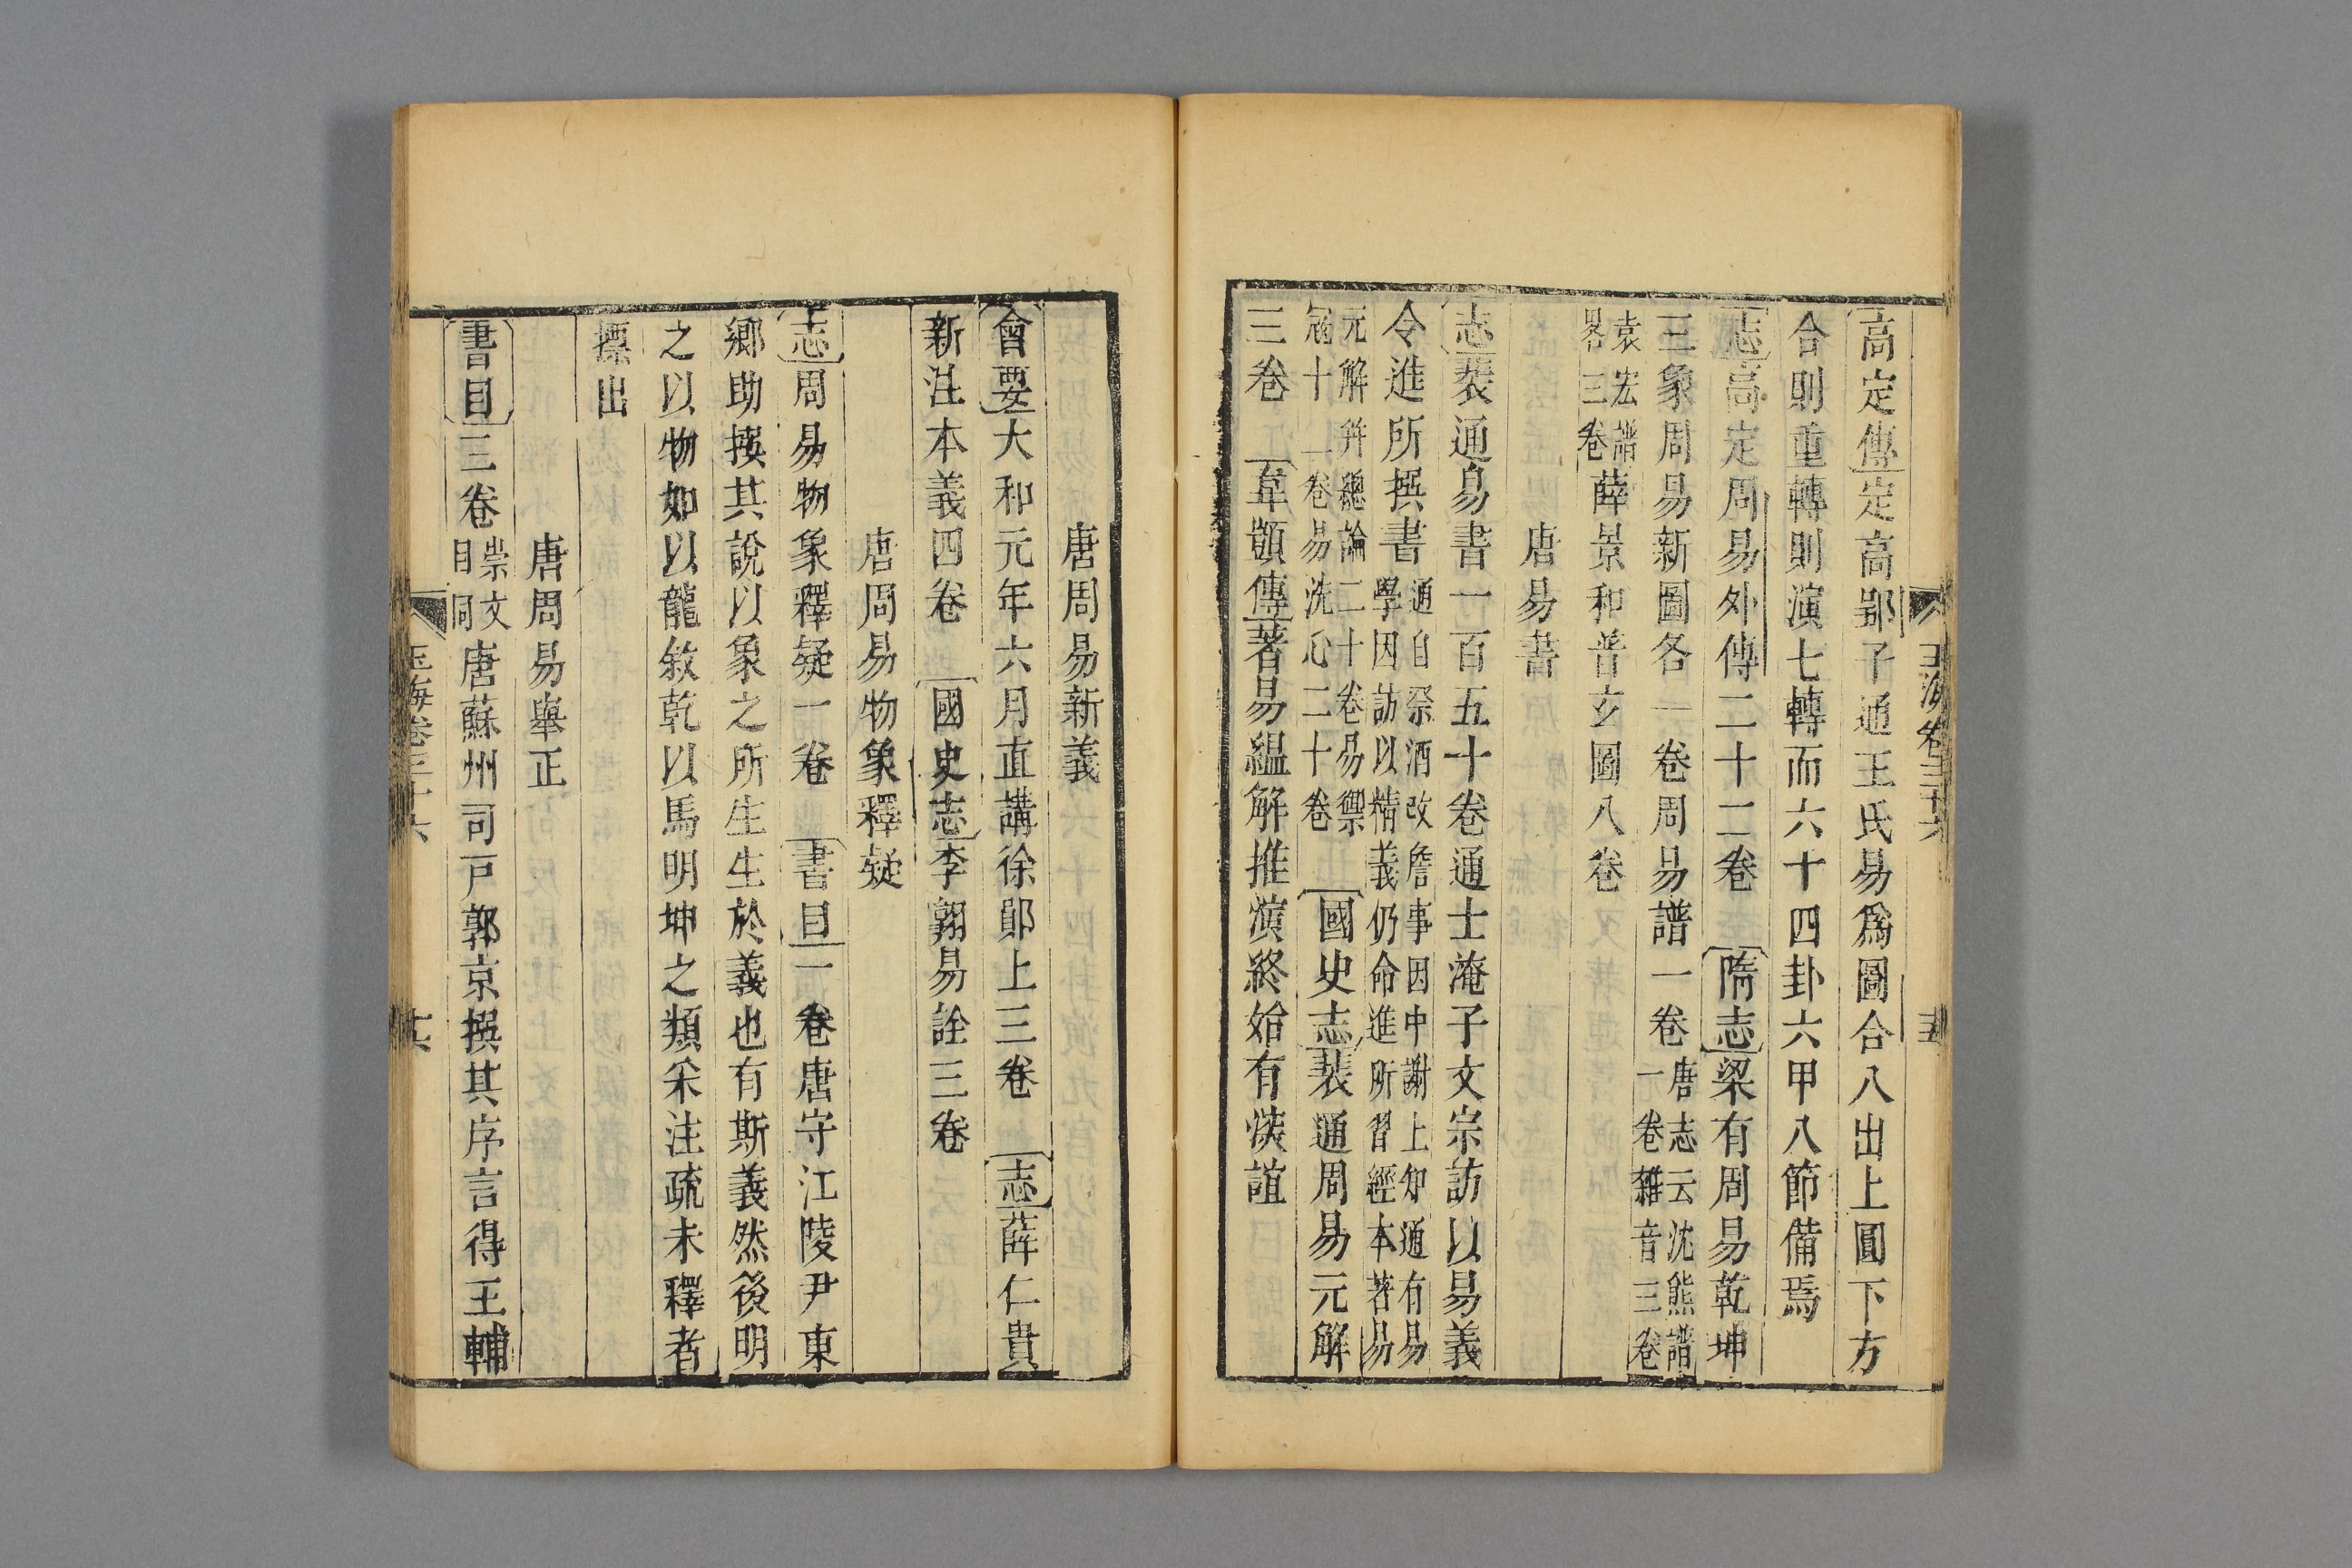 玉海卷三十六
高定傳定高郢子通王氏易爲圖合八出上圓下方
合則重轉則演七轉而六十四卦六甲八節備焉
志高定周易外傳二十二卷 隋志梁有周易乾坤
三象周易新圖各一卷周易譜一卷唐志云沈熊譜一卷雜音三卷
袁宏譜畧三卷薛景和普玄圖八卷
唐易書
志裴通易書一百五十卷通士淹子文宗訪以易義
令進所撰書通自祭酒改詹事因中謝上知通有易學因訪以精義仍命進所習經本著易
元解幷總論二十卷易禦寇十三卷易洗心二十卷 國史志裴通周易元解
三卷 韋顗傳著易縕解推演終始有淡誼
唐周易新義
會要大和元年六月直講徐鄖上三卷 志薛仁貴
新注本義四卷 國史志李翱易詮三卷
唐周易物象釋疑
志周易物象釋疑一卷 書目一卷唐守江陵尹東
鄉助撰其說以象之所生生於義也有斯義然後明
之以物如以龍敘乾以馬明坤之類釆注疏未釋者
摽出
唐周易舉正
書目三卷崇文目同唐蘇州司戸郭京撰其序言得王輔
玉海卷三十六